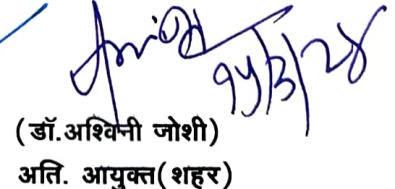 १५/३/२४
(डॉ.अश्विनी जोशी)
अति. आयुक्त(शहर)